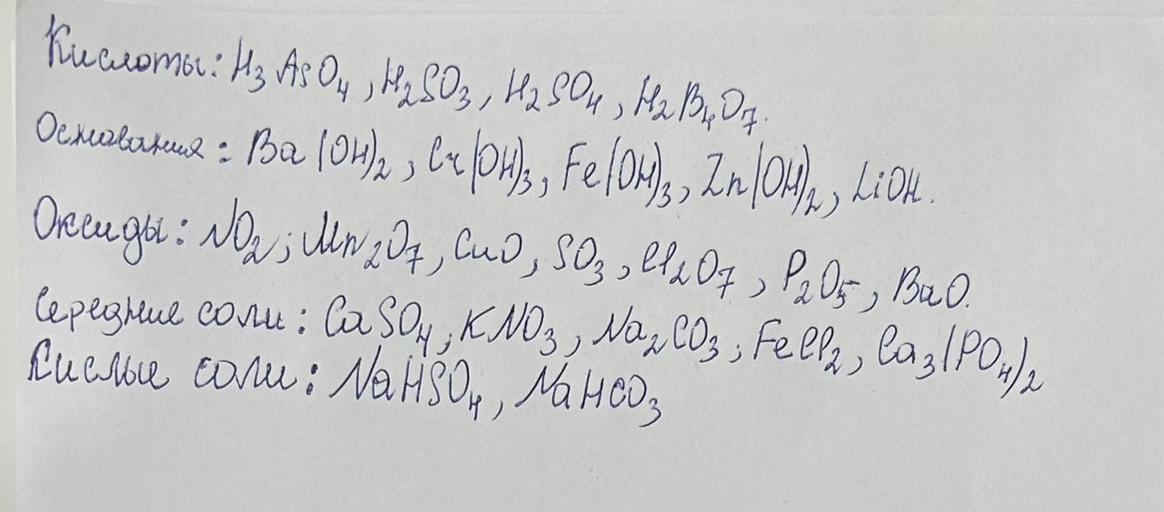 Кислоты: H₃AsO₄, H₂SO₃, H₂SO₄, H₂B₄O₇.
Основания: Ba(OH)₂, Cr(OH)₃, Fe(OH)₃, Zn(OH)₂, LiOH.
Оксиды: NO₂; Mn₂O₇, CuO, SO₃, Cl₂O₇, P₂O₅, BaO.
Середние соли: CaSO₄, KNO₃, Na₂CO₃, FeCl₂, Ca₃(PO₄)₂
Кислые соли: NaHSO₄, NaHCO₃